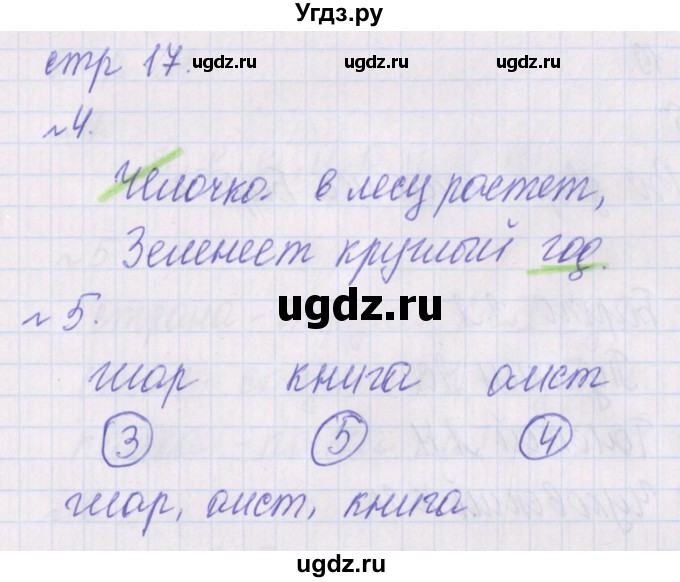 Угдз.ру
стр 17.
ugdz.ru ugdz.ru ugdz.ru
№4.
Челочка в лесу растет,
Зеленеет круглый год.
ugdz.ru
№5.
шар книга аист
3 5 4
шар, аист, книга
ugdz.ru